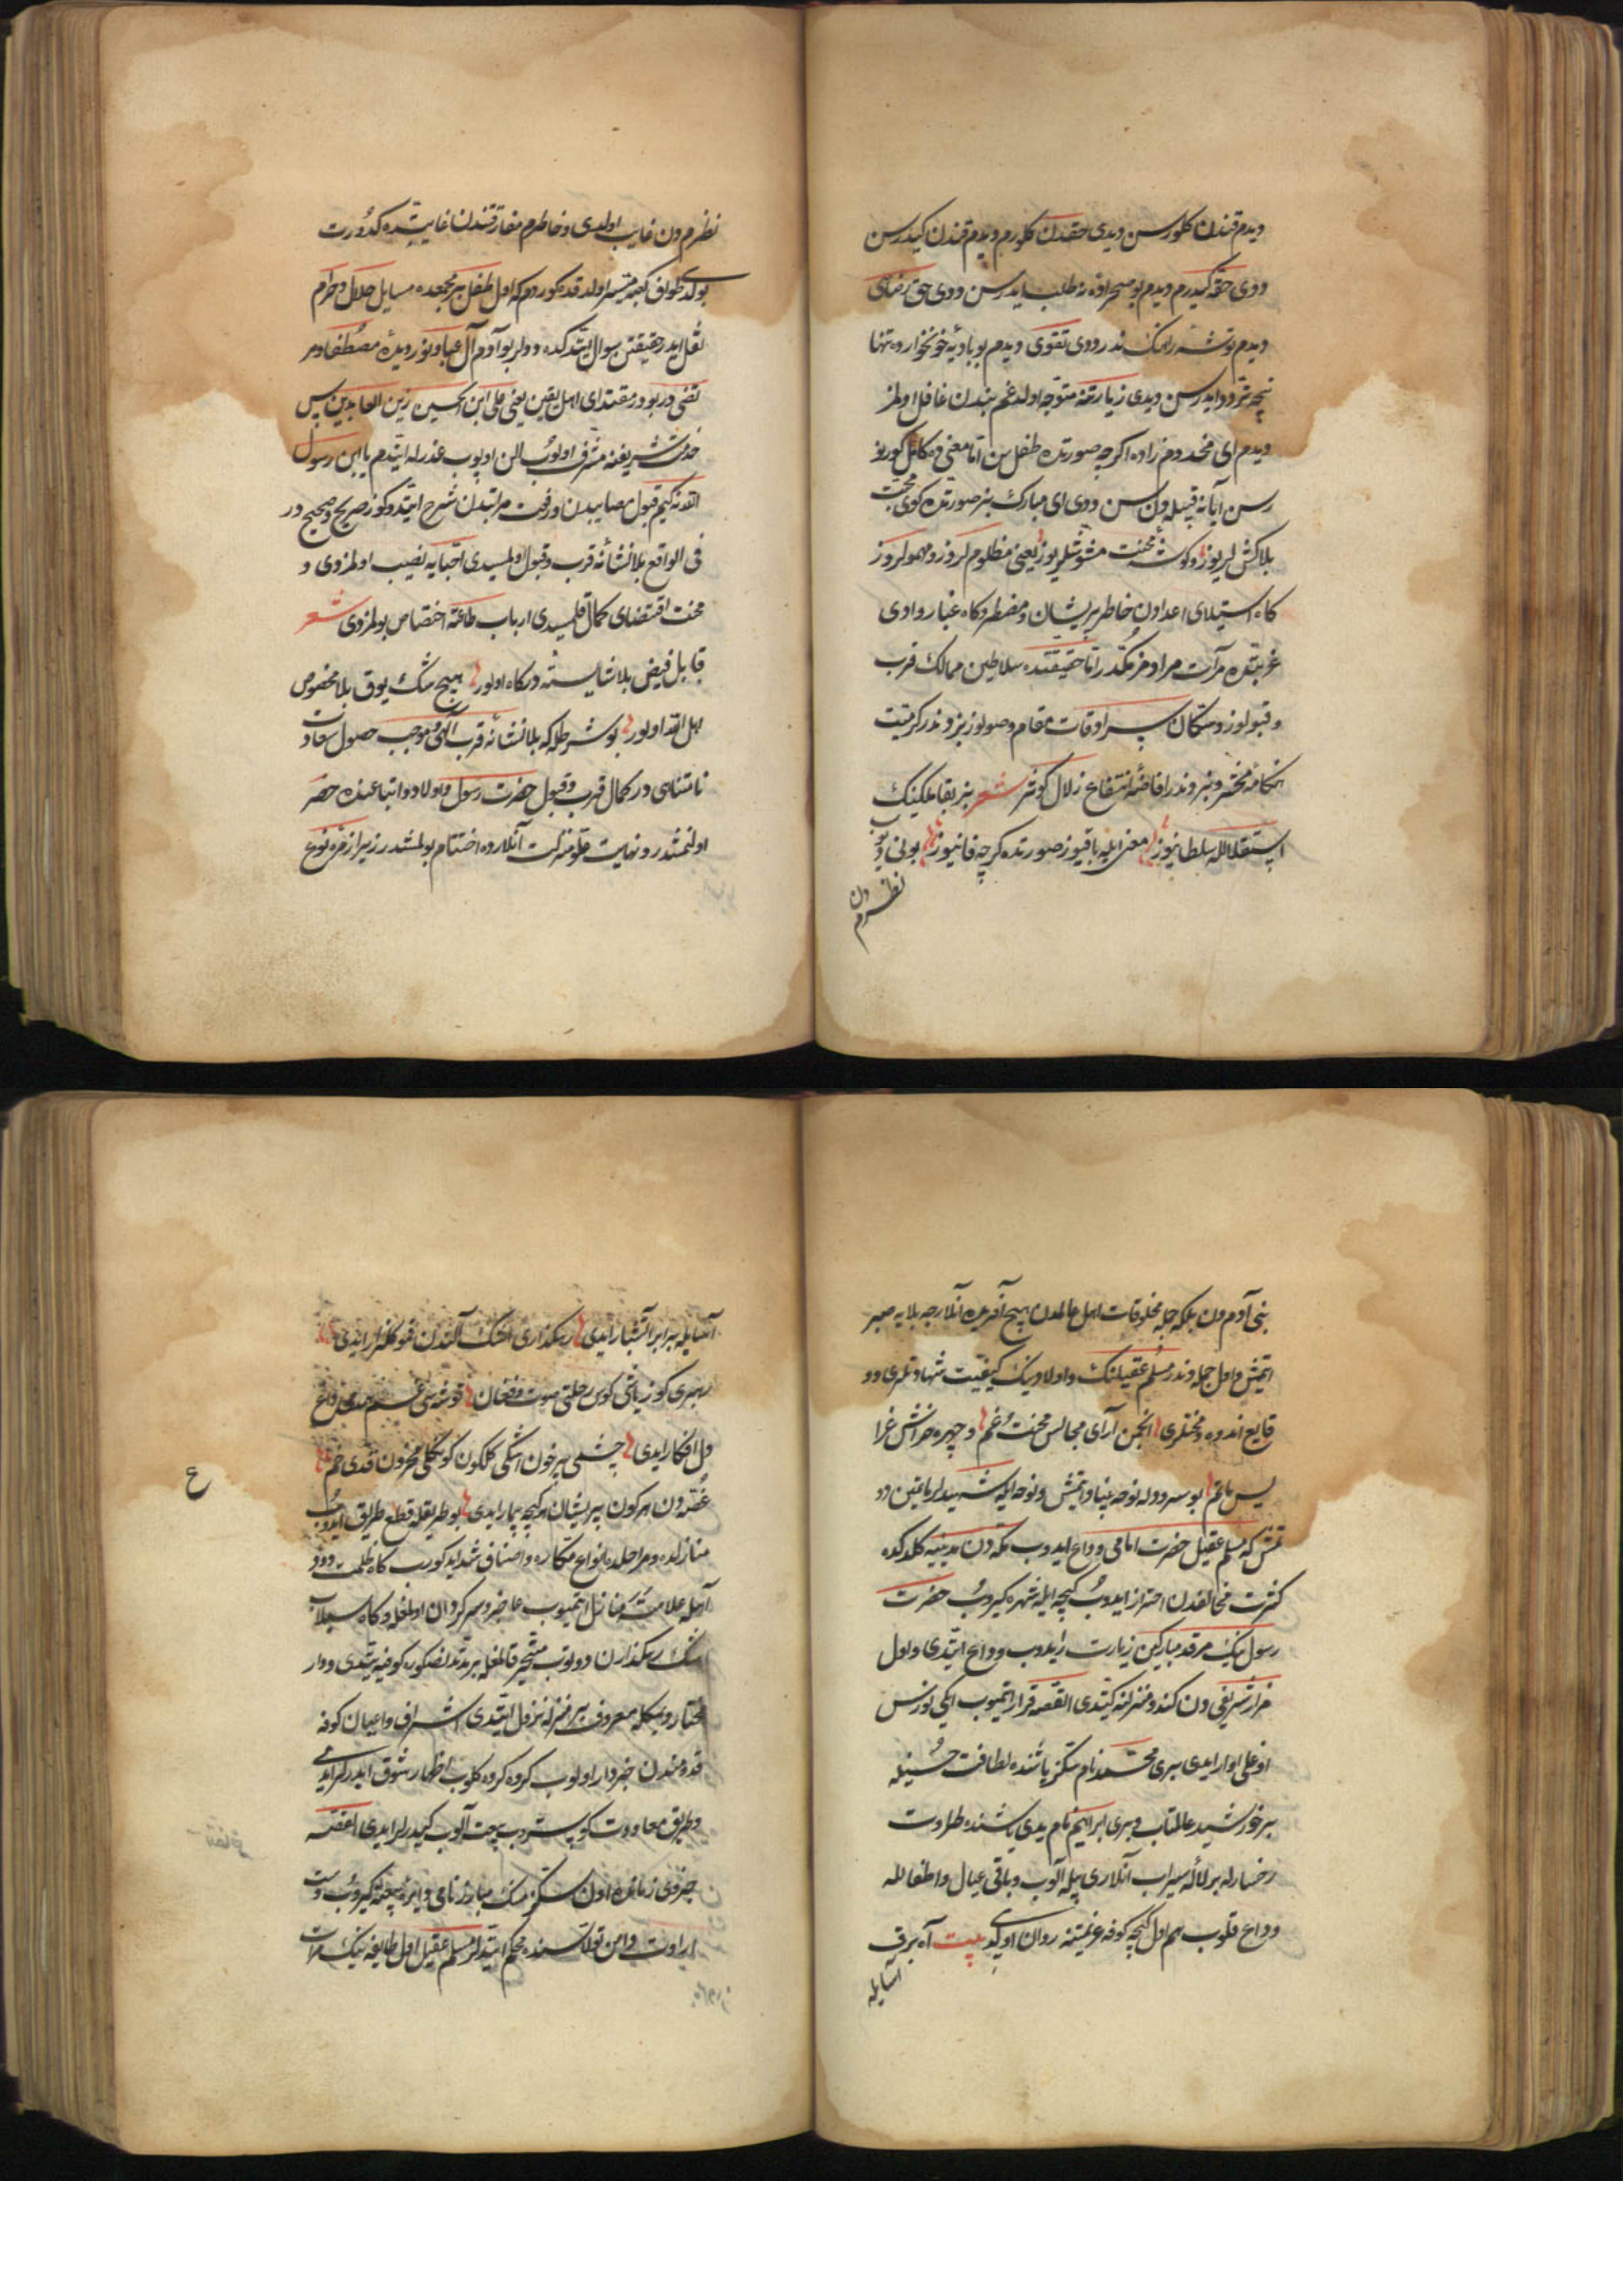 دیدم قندن کلورسن دیدی حقدن کلورم دیدم قندن کیدرسن
ددی حقه کیدرم دیدم بو صحراده نه طلب ایدرسن ددی حق رضاسی
دیدم توشه راهک ندر ددی تقوی دیدم بو بادیهٔ خونخوارده تنها
نیجه تردد ایدرسن دیدی زیارتنه متوجه اولدغم بندن غافل اولمز
دیدم ای مخدوم زاده اکرچه صورتده طفل سن اما معنی ده کامل کورنو
رسن آیا نه قبیله دن سن ددی ای مبارک بز صورتده کوی محبت
بلاکش لریوز و کوشهٔ محنت مشوشلریوز یعنی مظلوملروز و مهمولروز
کاه استیلای اعدادن خاطر پریشان و مضطر و کاه غبار وادی
غربتده مرآت مرادمز مکدر اما حقیقتده سلاطین ممالک قرب
و قبولوز و ستکان سراوقات مقام وصولوز بزوندر کرمیت
هنکامهٔ محشر و بزوندر افاضهٔ انتفاع زلال کوثر شعر بز بقا ملکینک
استقلالله سلطانیوز معنی ایله باقیوز صورتده کرچه فانیوز بونی دیوب
نظرم دن
نظرم دن غایب اولدی و خاطرم مفارقتندن غایتده کدورت
بولدی طواف کعبه میسر اولدقده کوردم که اول طفل بر مجمعده مسایل حلال و حرام
نقل ایدر حقیقتن سوال ایتدکده ددلر بو آدم آل عبا و نور دیدهٔ مصطفا و مر
تضی در بودر مقتدای اهل یقین یعنی علی ابن الحسین زین العابدین پس
خدمت شریفنه مشرف اولوب الن اوپوب عذرله ایتدم یا ابن رسول
الله نه کیم قبول مصایبدن و رفعت مراتبدن شرح ایتدوکوز صریح و صحیح در
فی الواقع بلا نشأنهٔ قرب و قبول اولمسیدی احبایه نصیب اولمزدی و
محنت اقتضای کمال قلمسیدی ارباب طاعته اختصاص بولمزدی شعر
قابل فیض بلا شایستهٔ درکاه اولور هیچ شک یوق بلا مخصوص
اهل الله اولور بو شرطله که بلا نشأنهٔ قرب الهی و موجب حصول سعادت
نامتناهی در کمال قرب و قبول حضرت رسول و اولاد و اتباعنده حصر
اولنمشدر و نهایت مقاومت آنلارده اختتام بولمشدر زیرا زمرهٔ نوع
بنی آدم دن بلکه جمله مخلوقات اهل عالمدن هیچ آفریده آنلارجه بلایه صبر
اتمیش و اول جمله دندر مسلم عقیلنک و اولادینک کیفیت شهادتلری و و
قایع اندوه و محنتلری انجمن آرای مجالس محنت و غم و چهره خراش عزا
لیس ماتم بو سردوله نوحه بنیاد اتمش و نوحه ایله شهیدلر یاتین دد
تمش که مسلم عقیل حضرت امامی وداع ایدوب مکه دن مدینیه کلدکده
کثرت مخالفدن احتراز ایدوب کیجه ایله شهره کیروب حضرت
رسولینک مرقد مبارکین زیارت ایدوب وداع ایتدی و اول
مزار شریفی دن کندو منزلنه کیتدی القصه قرار اتمیوب ایکی نورس
اوغلی وار ایدی بیری محمد نام سکز یاشنده لطافت حسنیله
بر خورشید عالمتاب و بیری ابراهیم نام یدی یاشنده طراوت
رخسارله بر لالهٔ سیراب آنلاری بیله آلوب و باقی عیال و اطفالله
وداع قلوب هم اول کیجه کوفه عزیمتنه روان اولدی بیت آه برق
آسایله
آسایله برابر آتشبار ایدی رهکذاری اشک آلندن کلزار ایدی
رهبری کوز یاشی کوس رحلتی صوت و فغان
دل افکار ایدی چشمی پر خون اشکی کلکون کوکلی محزون قدی خم
غصه دن هر کون پریشان هر کیجه بیمار ایدی بو طریقله قطع طریق ایدوب
منازلده و مراحلده انواع مکاره و اصناف شداید کورب کاه ظلمت دود
آهله علامت منازل اتمیوب عاجز و سرکردان اولمغله و کاه سیلاب
اشک رهکذارن دوتوب متحیر قالمغله بر مدتدنصکره کوفیه یتدی و دار
مختار دیمکله معروف بر منزله نزول ایتدی اشراف و اعیان کوفه
قدومندن خبردار اولوب کروه کروه کلوب اظهار شوق ایدرلر ایدی
و طریق معاودت کوستروب بیعت آلوب کیدرلر ایدی القصه
جزوی زمانده اون سکز منک مبارز نامی دایرهٔ بیعته کیروب دست
ارادت دامن تولاسنده محکم ایتدیلر مسلم عقیل اول طایفه نینک مراسم
ع